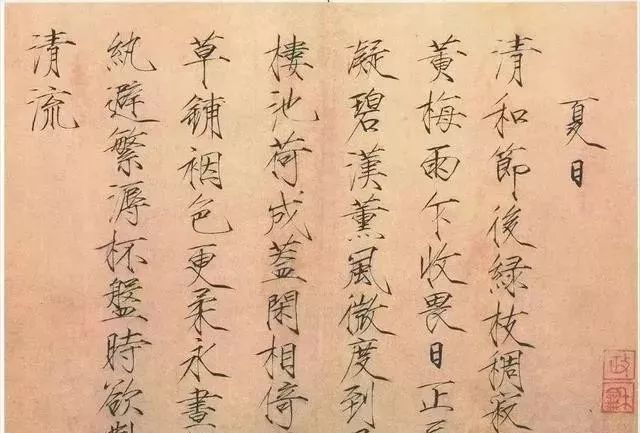 夏日
清和節後緑枝稠寂
黃梅雨乍收畏日正
凝碧漢薰風微度到
樓池荷成蓋閑相倚
草鋪裀色更柔永晝
紈避繁溽杯盤時欲
清流